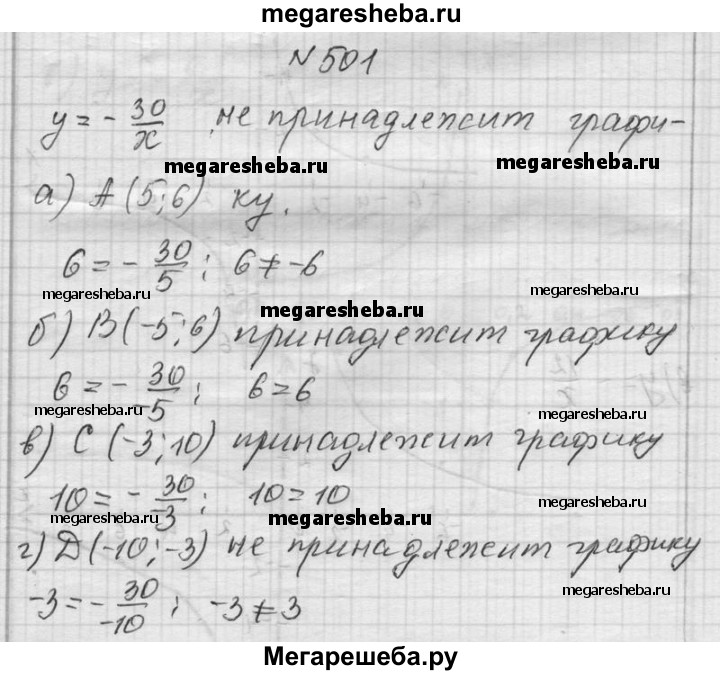 megaresheba.ru
N 501
y = - 30/x не принадлежит графи-
megaresheba.ru
megaresheba.ru
а) A (5; 6) ку.
6 = - 30/5 ; 6 ≠ -6
megaresheba.ru
megaresheba.ru
б) B (-5; 6) принадлежит графику
megaresheba.ru
6 = - 30/-5 ; 6 = 6
megaresheba.ru
megaresheba.ru
в) C (-3; 10) принадлежит графику
10 = - 30/-3 ; 10 = 10
megaresheba.ru
megaresheba.ru
megaresheba.ru
г) Д (-10; -3) не принадлежит графику
-3 = - 30/-10 ; -3 ≠ 3
megaresheba.ru
Мегарешеба.ру